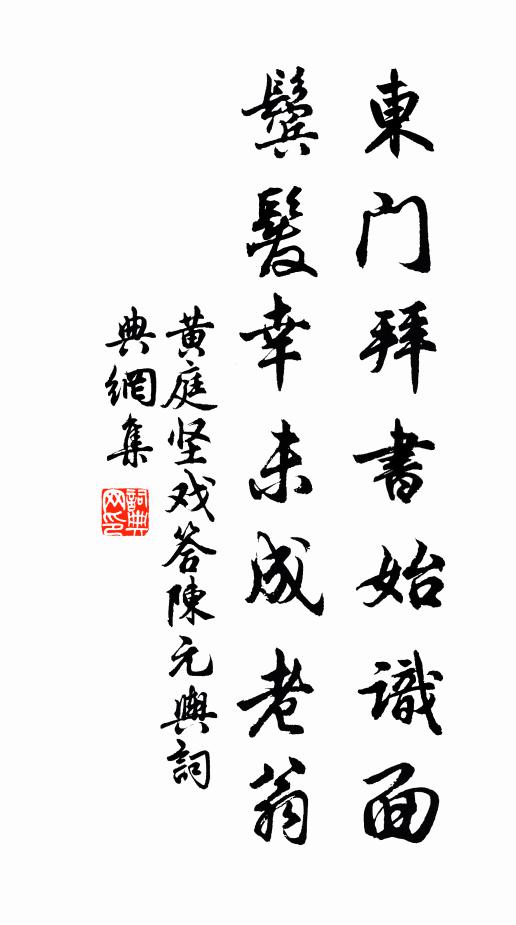 東門拜書始識面
鬓髮幸未成老翁
黄庭坚戏答陳元輿詞
典網集
詞典网印